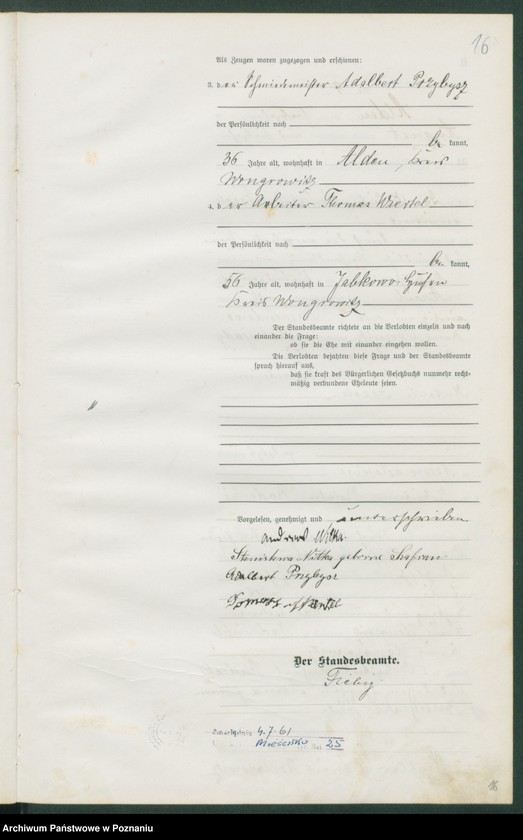 16
Als Zeugen waren zugezogen und erschienen:
3. der Schmiedemeister Adalbert Przybysz
der Persönlichkeit nach
be kannt,
36 Jahre alt, wohnhaft in Alden, Kreis
Wongrowitz
4. der Arbeiter Thomas
der Persönlichkeit nach
be kannt,
56 Jahre alt, wohnhaft in Jabkowo-Hufen
Kreis Wongrowitz
Der Standesbeamte richtete an die Verlobten einzeln und nach
einander die Frage:
ob sie die Ehe mit einander eingehen wollen.
Die Verlobten bejahten diese Frage und der Standesbeamte
sprach hierauf aus,
daß sie kraft des Bürgerlichen Gesetzbuchs nunmehr recht-
mäßig verbundene Eheleute seien.
Vorgelesen, genehmigt und unterschrieben
Andreas Witka
Stanislawa Witka geborne Szafran
Adalbert Przybysz
Der Standesbeamte.
4.7.61
25
16
Archiwum Państwowe w Poznaniu